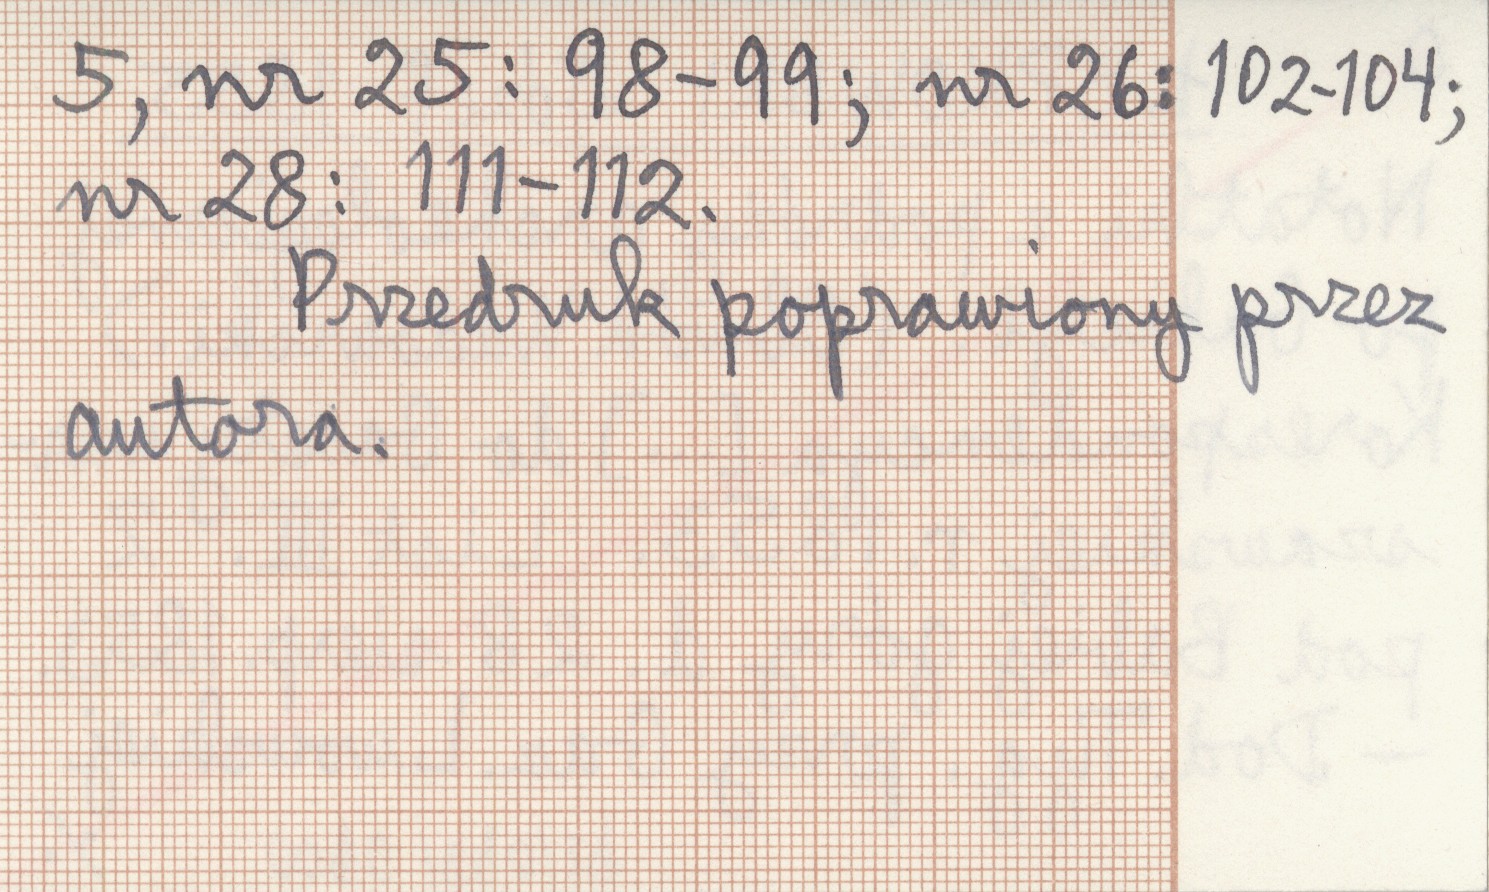 5, nr 25: 98-99; nr 26: 102-104;
nr 28: 111-112.
Przedruk poprawiony przez
autora.